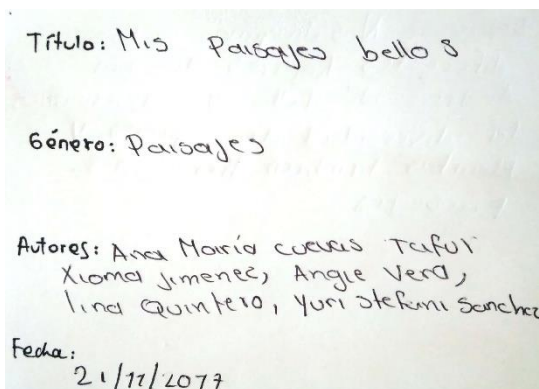 Título: Mis Paisajes bellos
Género: Paisajes
Autores: Ana María cuevas Tafur
Xioma Jimenez, Angie Vera,
lina Quintero, Yuri stefani Sanchez
Fecha:
21/11/2017